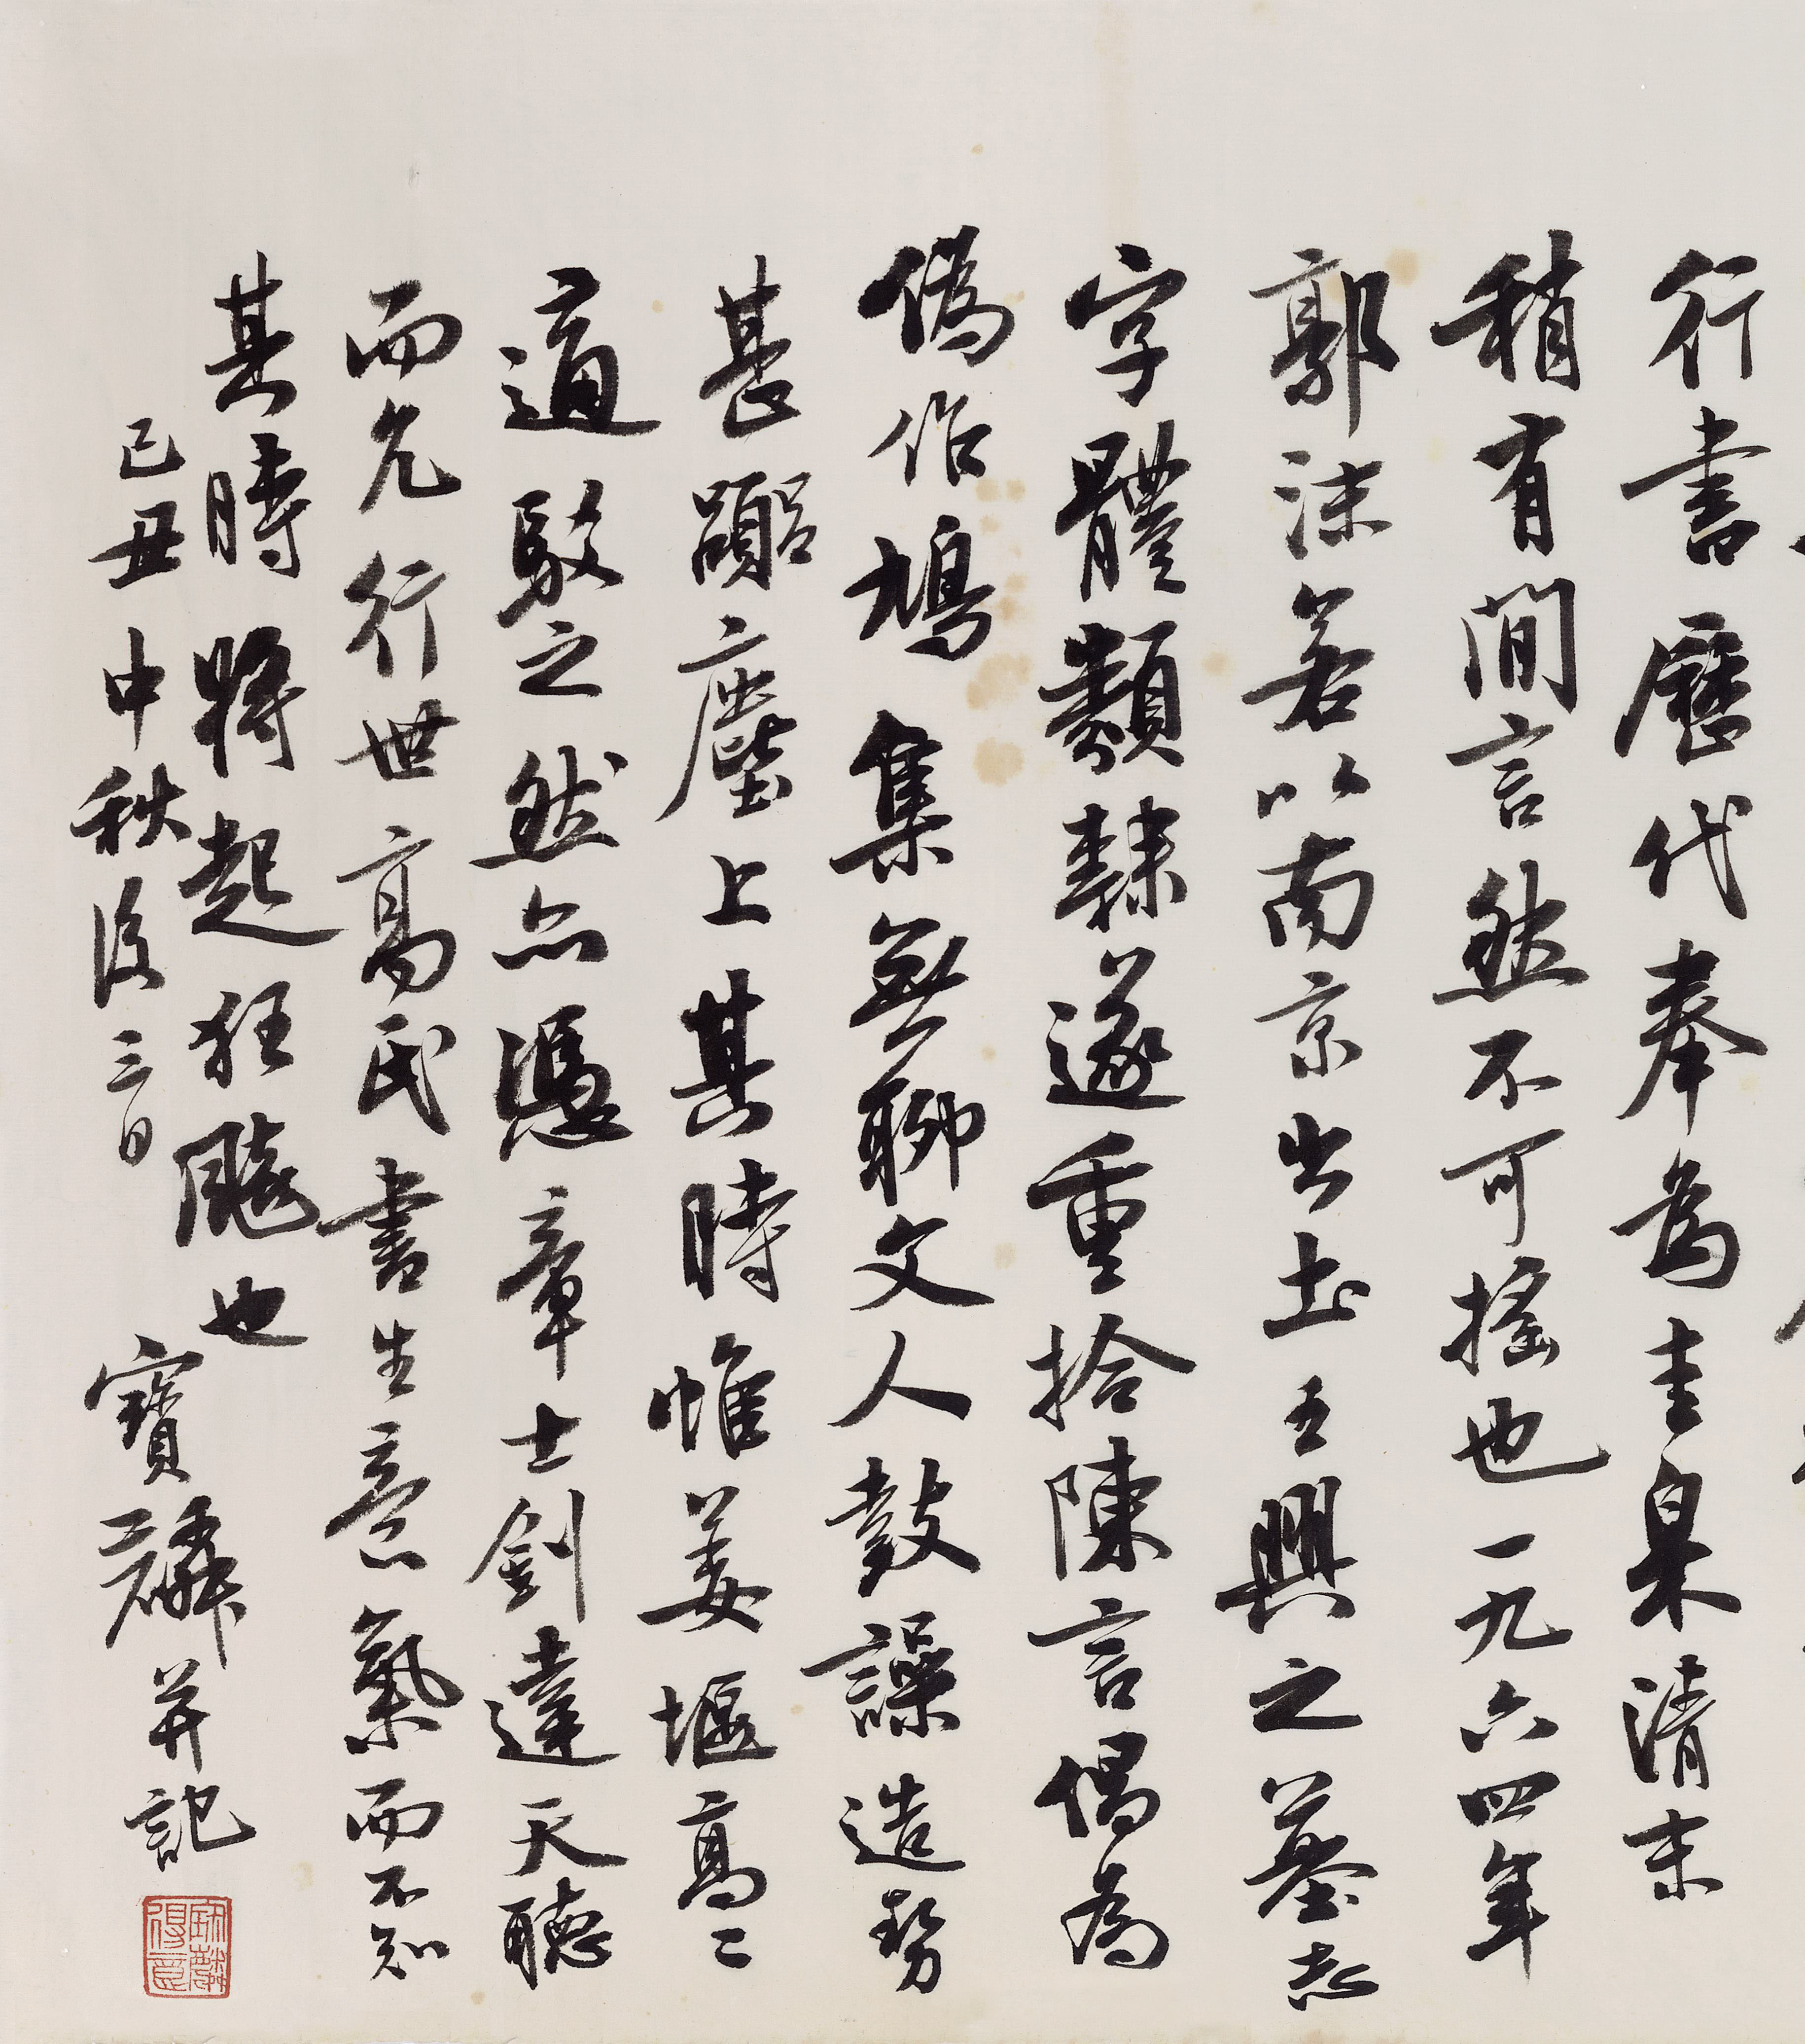 行書歷代奉為圭臬清末
稍有間言然不可搖也一九六四年
郭沫若以南京出土王興之墓志
字體類隸遂重拾陳言倡為
偽作鳩集無聊文人鼓譟造勢
甚囂塵上其時惟姜堰高二
適駁之然亦憑章士釗達天聽
而允行世高氏書生意氣而不知
其時將起狂飈也
己丑中秋後三日
寶麟并記